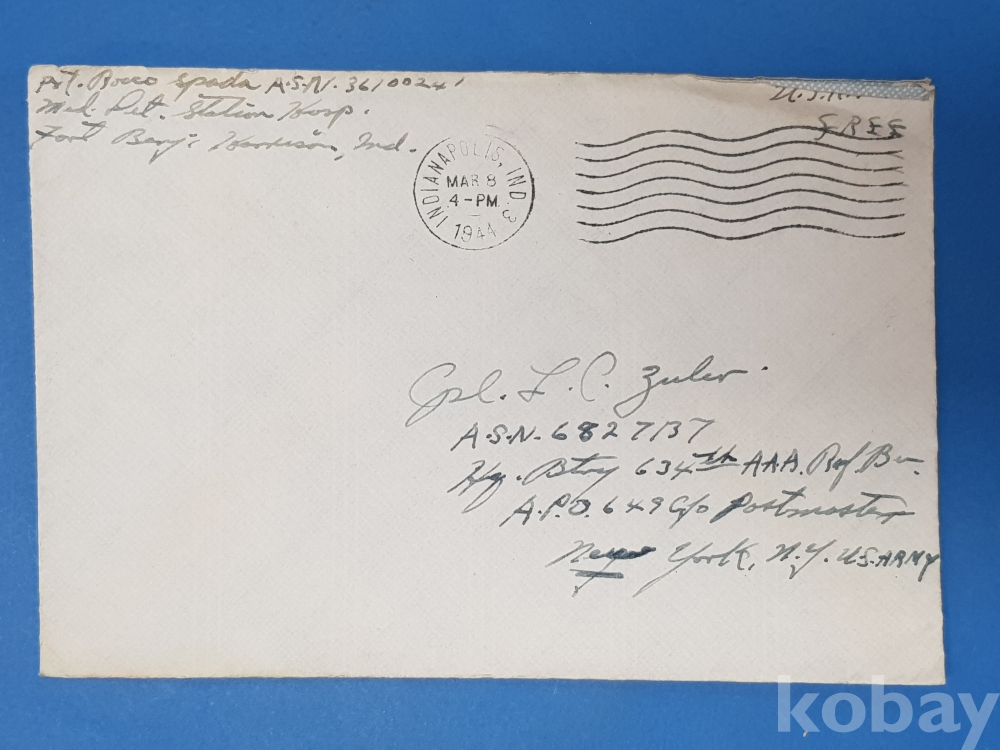 Pvt. Rocco Spada A.S.N. 36100241
Med. Det. Station Hosp.
Fort Benj. Harrison, Ind.
FREE
INDIANAPOLIS, IND. 3
MAR 8
4-PM
1944
Cpl. L. C. Zuler
A.S.N. 6827137
Hq. Btry 634th A.A.A.
A.P.O. 649 c/o Postmaster
New York, N.Y. U.S. ARMY
kobay